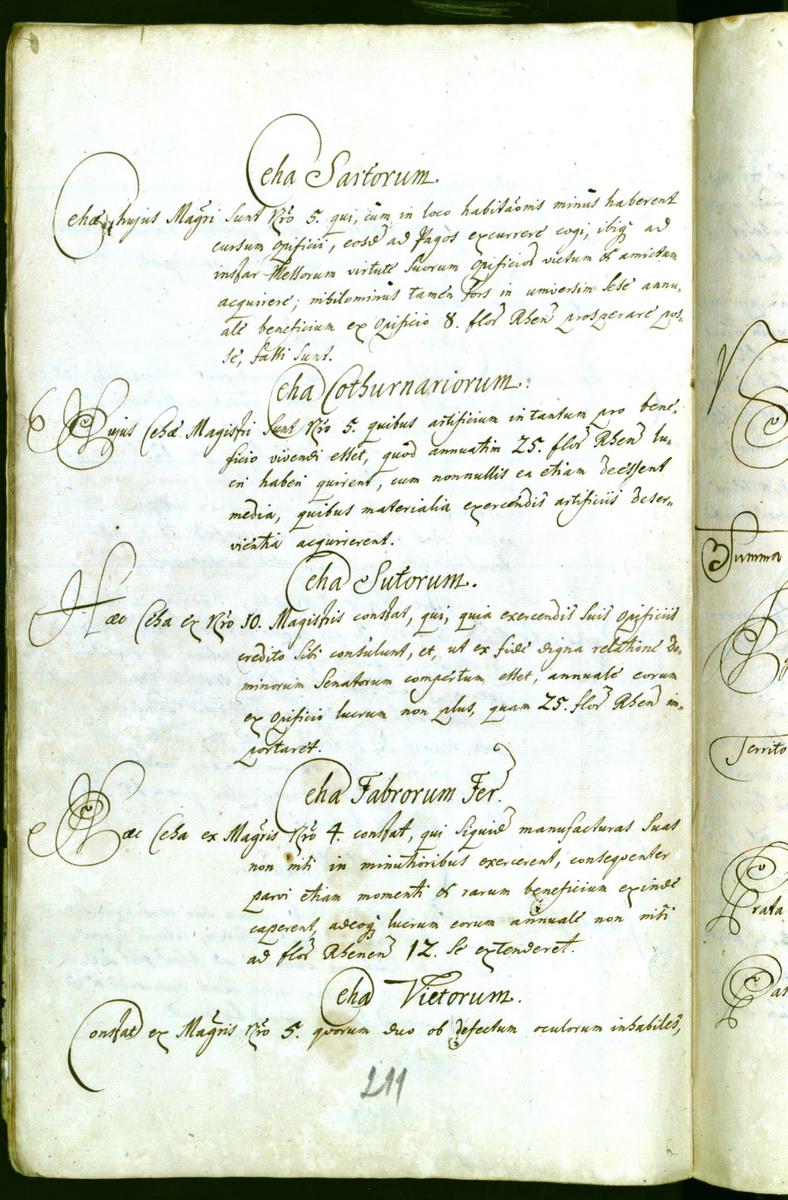 Ceha Sartorum.
Cehæ hujus Magři sunt Nřo 5. qui, cùm in loco habitaõnis minùs haberent
cursum opificii, eosd̃ ad Pagos excurrere cogi, ibiq̃ ad
instar Messorum virtute suorum opificiõ victum & amictum
acquirere; nihilominùs tamen fors in universim sese annu-
ale beneficium ex opificio 8. flor̃ Rheñ prosperare pos-
se, fassi sunt.
Ceha Cothurnariorum.
Hujus Cehæ Magistri sunt Nřo 5. quibus artificium in tantum pro bene-
ficio vivendi esset, quòd annuatim 25. flor̃ Rheñ lu-
cri haberi quirent, cum nonnullis ea etiam decessent
media, quibus materialia exercendis artificiis deser-
vientia acquirerent.
Ceha Sutorum.
Hæc Ceha ex Nřo 10. Magistris constat, qui, quia exercendis suis opificiis
credito sibi consulunt, et, ut ex fide digna relatione Do-
minorum Senatorum compertum esset, annuale eorum
ex opificio lucrum non plus, quam 25. flor̃ Rheñ im-
portaret.
Ceha Fabrorum Fer.
Hæc Ceha ex Magřis Nřo 4. constat, qui siquid̃ manufacturas suas
non nisi in minutioribus exercerent, consequenter
parvi etiam momenti & rarum beneficium exinde
caperent, adeoq̃ lucrum eorum annuale non nisi
ad flor̃ Rhenen̄ 12. se extenderet.
Ceha Vietorum.
Constat ex Magřis Nřo 5. quorum duo ob defectum oculorum inhabiles,
211
Summa
Territo
Prata